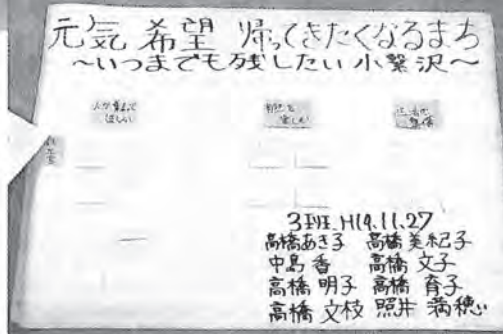 元気 希望 帰ってきたくなるまち
～いつまでも残したい小繋沢～
3班 H19.11.27
高橋あき子 高橋美紀子
中島 香 高橋 文子
高橋 明子 高橋 育子
高橋 文枝 照井 満穂